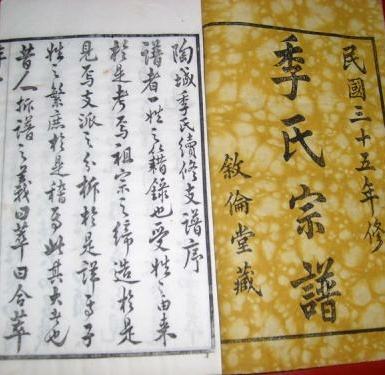 民國三十五年修
季氏宗譜
敘倫堂藏
陶城季氏續修支譜序
譜者一姓之籍錄也受姓之由來
於是考焉祖宗之締造於是
見焉支派之分析於是詳焉子
姓之繁庶於是稽焉此其大者也
昔人抓譜之義曰萃曰合萃